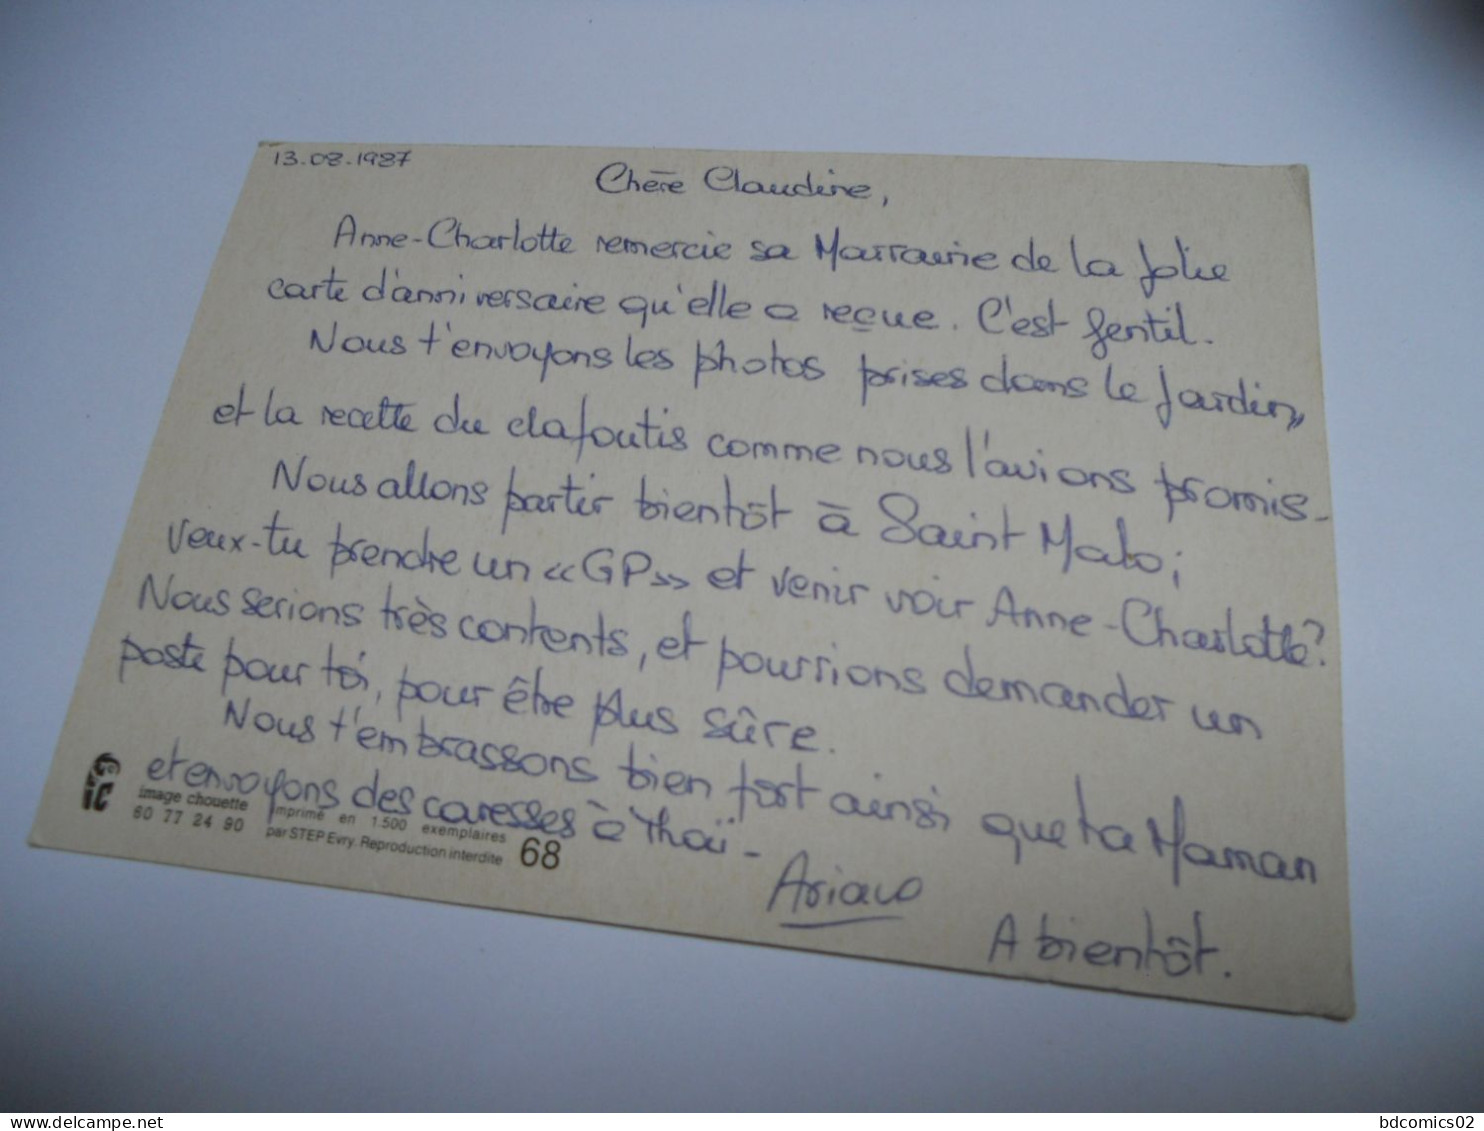 13.08.1987
Chère Claudine,
Anne-Charlotte remercie sa Marraine de la jolie
carte d'anniversaire qu'elle a reçue. C'est gentil.
Nous t'envoyons les photos prises dans le jardin,
et la recette du clafoutis comme nous l'avions promis-
Nous allons partir bientôt à Saint Malo;
veux-tu prendre un «GP» et venir voir Anne-Charlotte?
Nous serions très contents, et pourrions demander un
poste pour toi, pour être plus sûre.
Nous t'embrassons bien fort ainsi que ta Maman
et envoyons des caresses à Thaï-
A bientôt.
image chouette
60 77 24 90
Imprimé en 1.500 exemplaires
par STEP Evry. Reproduction interdite
68
bdcomics02